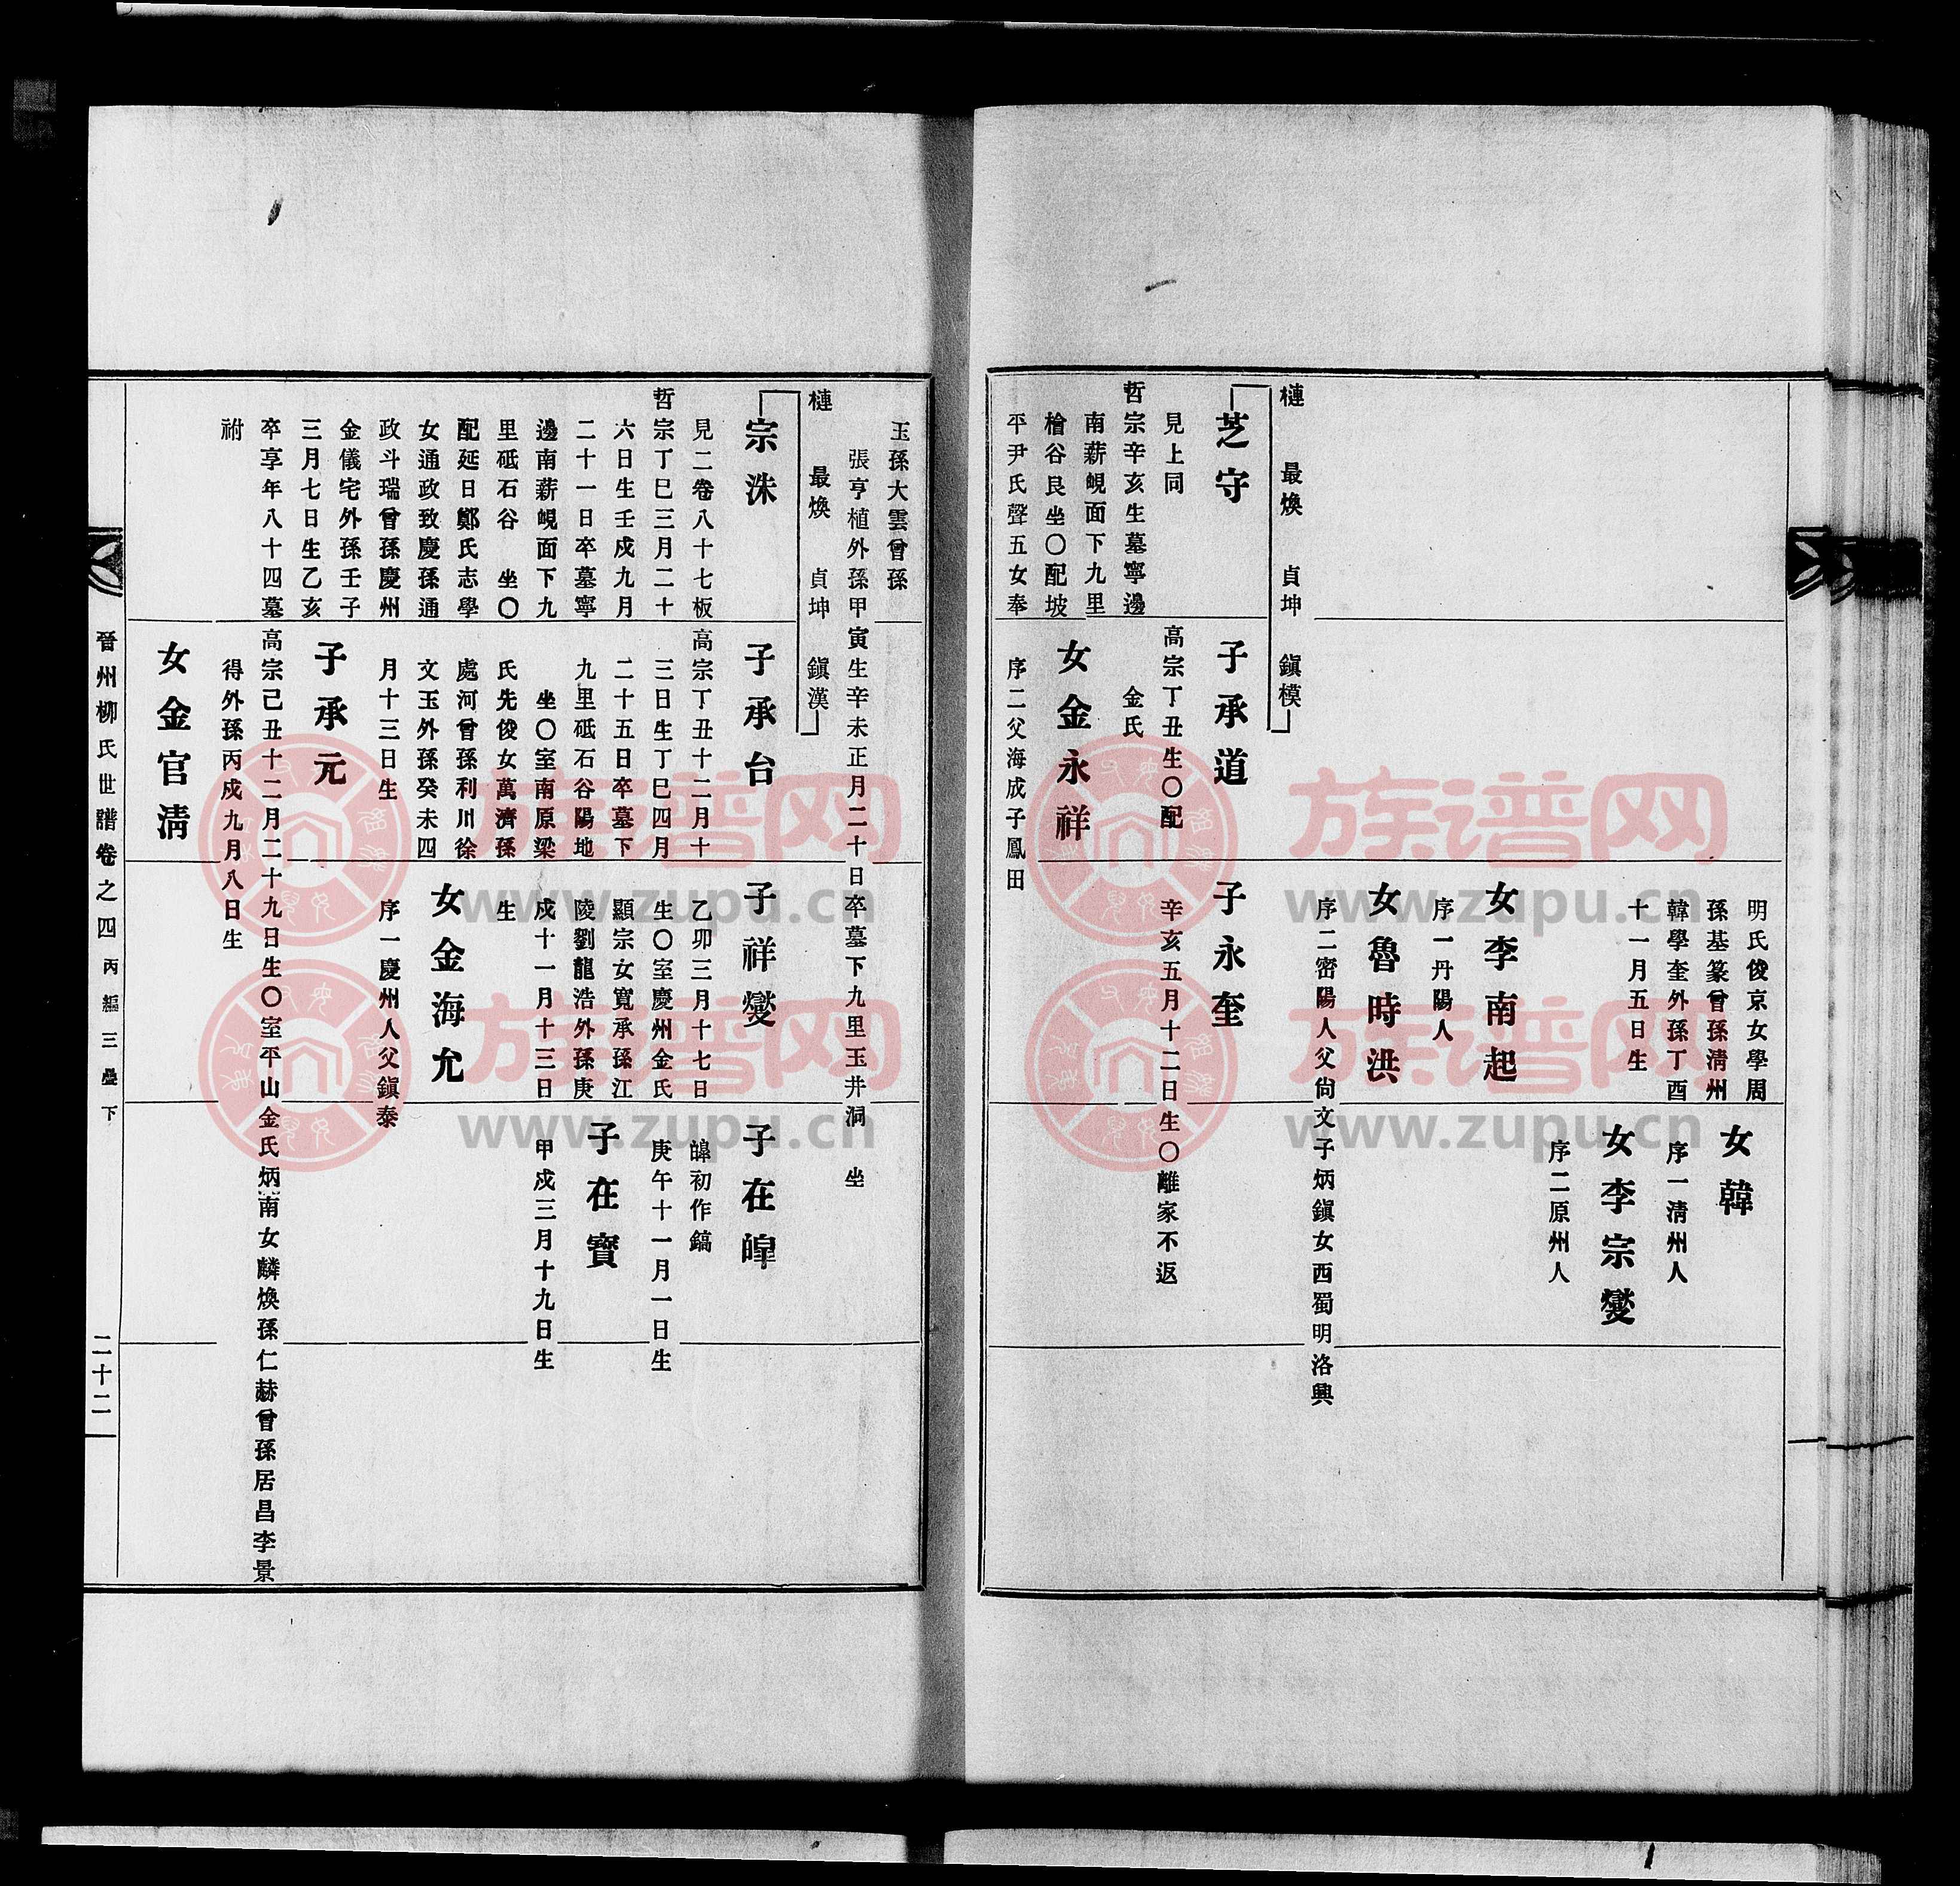 明氏俊京女學周
孫基篆曾孫淸州
韓學奎外孫丁酉
十一月五日生
女韓
序一淸州人
女李宗燮
序二原州人
女李南起
序一丹陽人
女魯時洪
序二密陽人父尙文子炳鎭女西蜀明洛興
槤 最煥 貞坤 鎭模
芝守
見上同
哲宗辛亥生墓寧邊
南薪峴面下九里
檜谷艮坐〇配坡
平尹氏聲五女奉
子承道
高宗丁丑生〇配
金氏
子永奎
辛亥五月十二日生〇離家不返
女金永祥
序二父海成子鳳田
玉孫大雲曾孫
張亨植外孫甲寅生辛未正月二十日卒墓下九里玉井洞 坐
槤 最煥 貞坤 鎭漢
宗洙
見二卷八十七板
哲宗丁巳三月二十
六日生壬戌九月
二十一日卒墓寧
邊南薪峴面下九
里砥石谷 坐〇
配延日鄭氏志學
女通政致慶孫通
政斗瑞曾孫慶州
金儀宅外孫壬子
三月七日生乙亥
卒享年八十四墓
祔
子承台
高宗丁丑十二月十
三日生丁巳四月
二十五日卒墓下
九里砥石谷陽地
坐〇室南原梁
氏先俊女萬濟孫
處河曾孫利川徐
文玉外孫癸未四
月十三日生
子祥燮
乙卯三月十七日
生〇室慶州金氏
顯宗女寬承孫江
陵劉龍浩外孫庚
戌十一月十三日
生
子在皡
皡初作鎬
庚午十一月一日生
子在寶
甲戌三月十九日生
女金海允
序一慶州人父鎭泰
子承元
高宗己丑十二月二十九日生〇室平山金氏炳南女麟煥孫仁赫曾孫居昌李景
得外孫丙戌九月八日生
女金官淸
晉州柳氏世譜卷之四 丙編三疊下
二十二
族谱网
www.zupu.cn
族谱网
www.zupu.cn
族谱网
www.zupu.cn
族谱网
www.zupu.cn